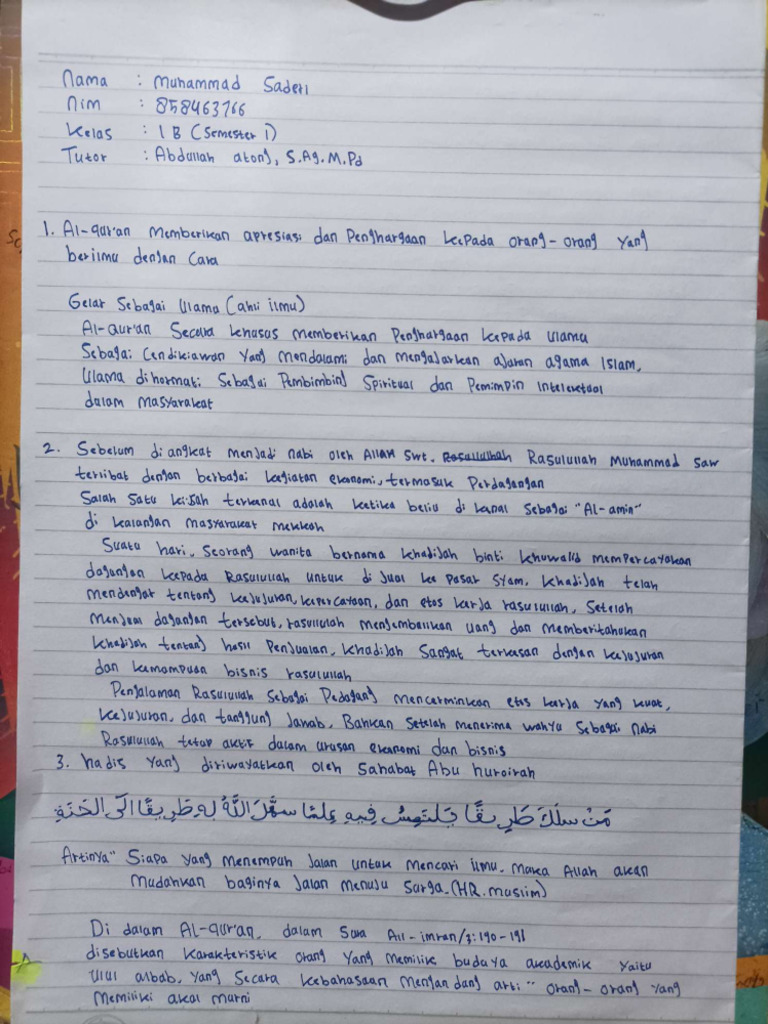 Nama : Muhammad Saderi
Nim : 858463766
Kelas : 1 B (Semester 1)
Tutor : Abdullah atong, S.Ag.M.Pd
1. Al-qur'an memberikan apresiasi dan Penghargaan kepada orang-orang yang
berilmu dengan Cara
Gelar Sebagai Ulama (ahli ilmu)
Al-Qur'an Secara khusus memberikan Penghargaan kepada ulama
Sebagai Cendikiawan yang mendalami dan mengajarkan ajaran agama Islam,
Ulama dihormati Sebagai Pembimbing Spiritual dan Pemimpin Intelektual
dalam masyarakat
2. Sebelum di angkat menjadi nabi oleh Allah Swt. Rasulullah Muhammad saw
terlibat dengan berbagai kegiatan ekonomi, termasuk Perdagangan
Salah Satu kisah terkenal adalah ketika beliu di kenal Sebagai "Al-amin"
di kalangan masyarakat mekkah
Suatu hari, Seorang wanita bernama khadijah binti khuwalid mempercayakan
dagangan kepada Rasulullah untuk di jual ke pasar Syam, khadijah telah
mendengar tentang kejujuran, kepercayaan, dan etos kerja rasulullah, Setelah
menjual dagangan tersebut, rasullulah mengembalikan uang dan memberitahukan
khadijah tentang hasil Penjualan, khadijah Sangat terkesan dengan kejujuran
dan kemampuan bisnis rasulullah
Pengalaman Rasulullah Sebagai Pedagang mencerminkan etos kerja yang kuat,
kejujuran, dan tanggung Jawab, Bahkan Setelah menerima wahyu Sebagai nabi
Rasulullah tetap aktif dalam urusan ekonomi dan bisnis
3. hadis yang diriwayatkan oleh Sahabat Abu huroirah
مَنْ سَلَكَ طَرِيقًا يَلْتَمِسُ فِيهِ عِلْمًا سَهَّلَ اللَّهُ لَهُ طَرِيقًا اِلَى الْجَنَّةِ
Artinya "Siapa yang menempuh Jalan untuk mencari ilmu. Maka Allah akan
Mudahkan baginya Jalan menuju Surga. (HR. muslim)
Di dalam Al-qur'an, dalam Sura All-imran/3:190-191
disebutkan karakteristik orang yang memiliki budaya akademik yaitu
Ulul albab, yang Secara kebahasaan mengandang arti " orang-orang yang
memiliki akal murni